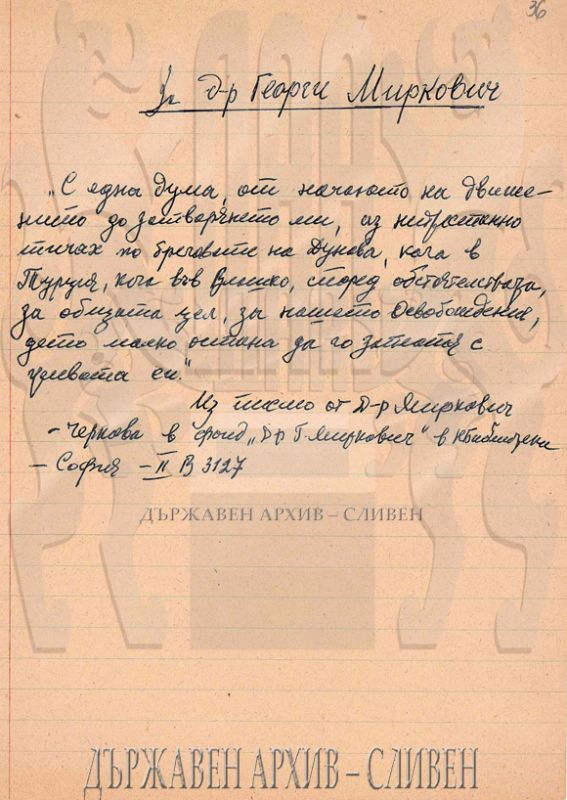 36
За Д-р Георги Миркович
„С една дума, от началото на движе-
нието до затварянето ми, аз непрестанно
тичах по бреговете на Дунава, кога в
Турция, кога във Влашко, според обстоятелствата,
за общата цел, за нашето Освобождение,
дето малко остана да го заплатя с
живота си."
Из писмо от Д-р Миркович
- Чернова в фонд „Д-р Г. Миркович" в
- София - II В 3127
ДЪРЖАВЕН АРХИВ – СЛИВЕН
ДЪРЖАВЕН АРХИВ – СЛИВЕН